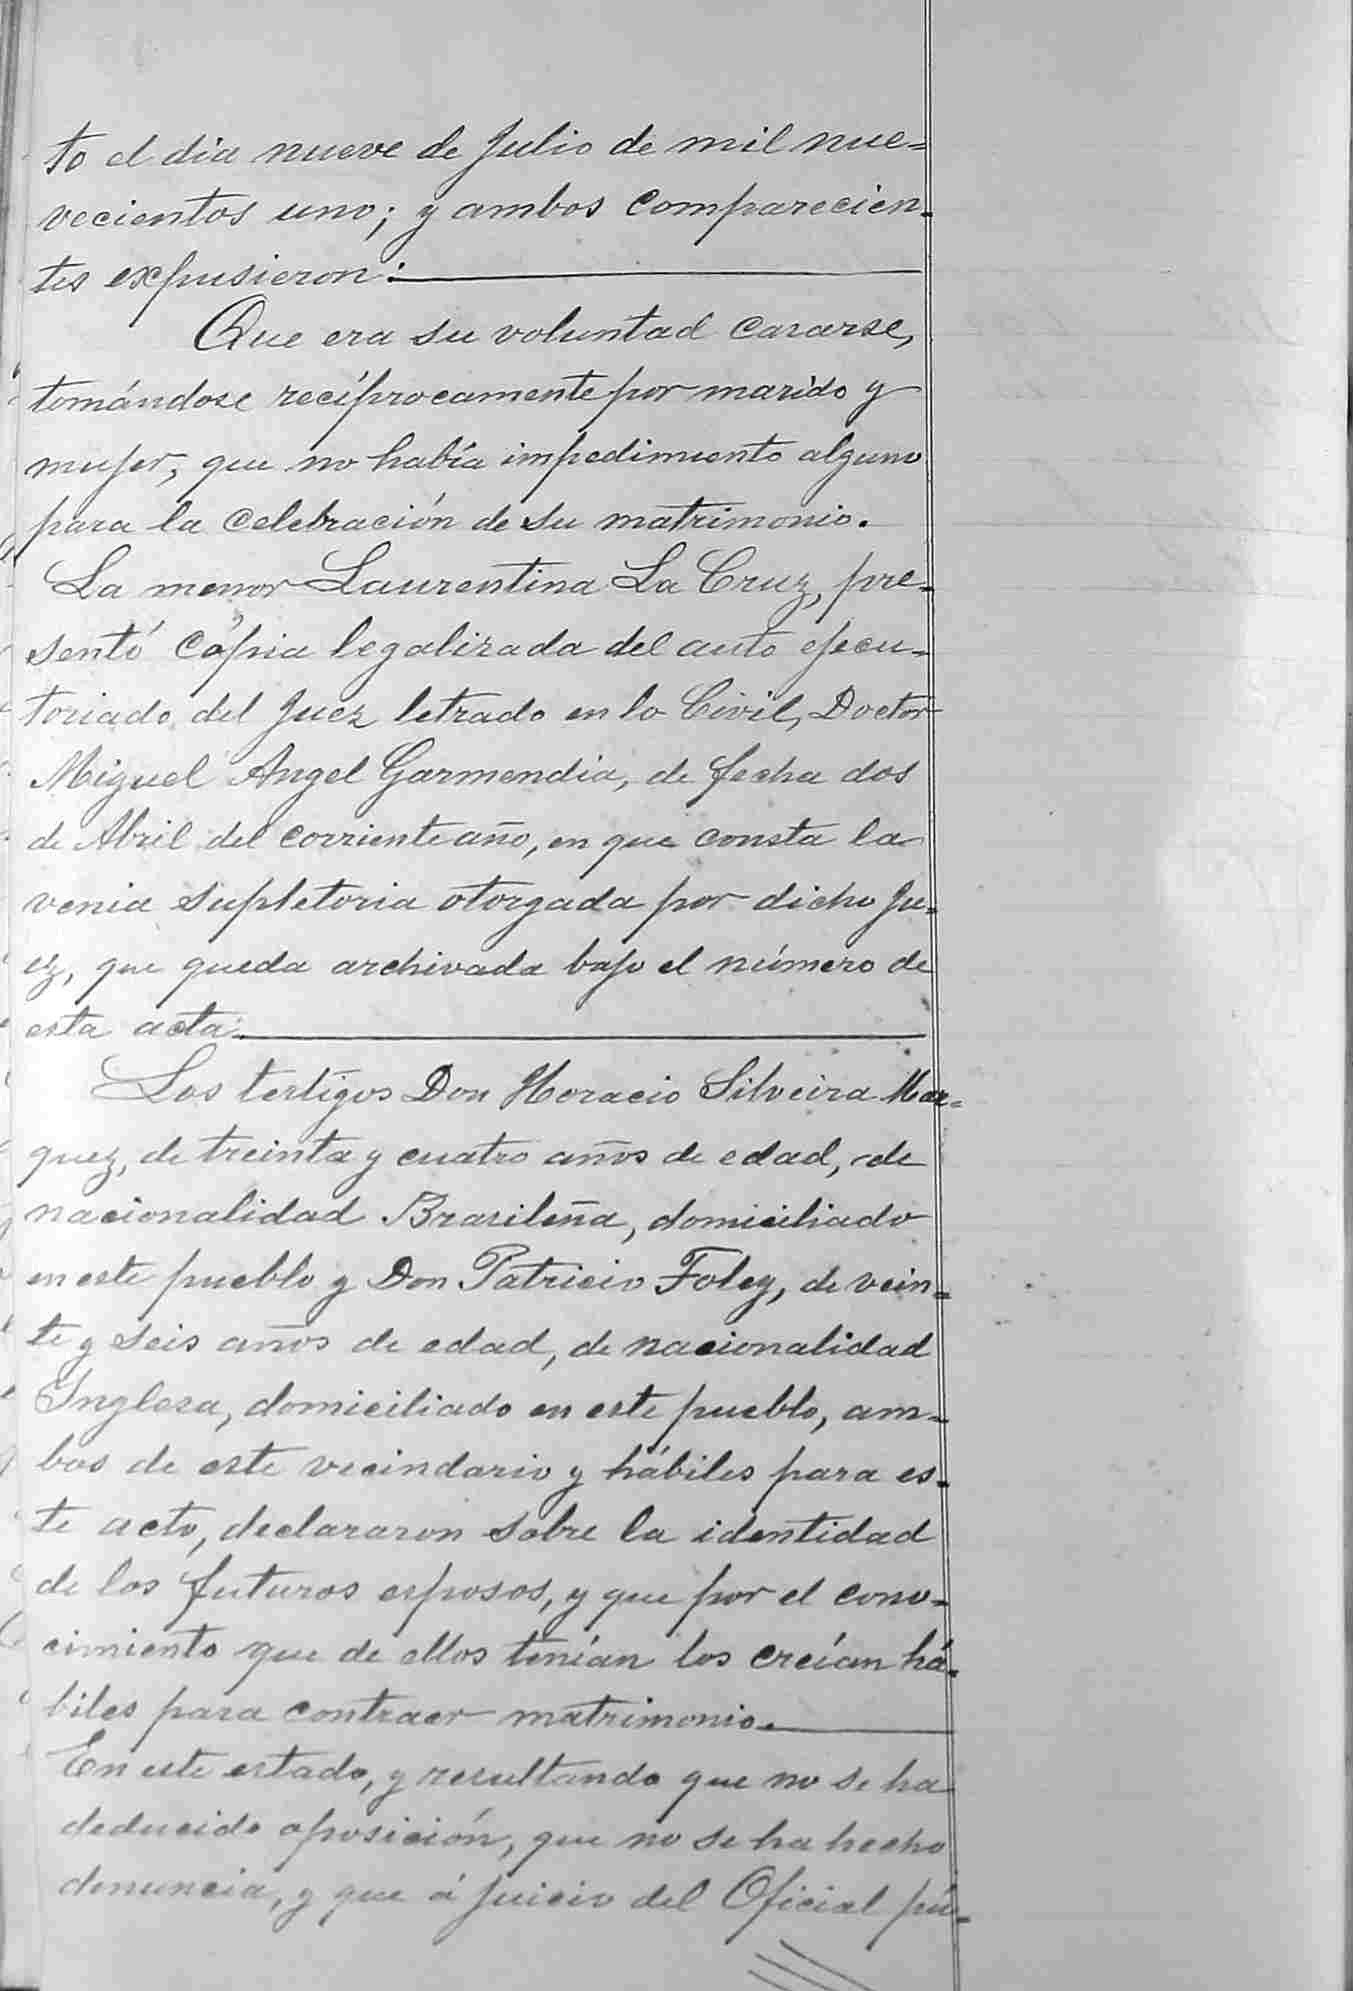 to el dia nueve de Julio de mil nue=
vecientos uno; y ambos comparecien=
tes expusieron:
Que era su voluntad casarse,
tomándose recíprocamente por marido y
mujer, que no había impedimento alguno
para la celebración de su matrimonio.
La menor Laurentina La Cruz, pre=
sentó cópia legalizada del auto ejecu=
toriado del Juez letrado en lo Civil, Doctor
Miguel Angel Garmendia, de fecha dos
de Abril del corriente año, en que consta la
venia supletoria otorgada por dicho Ju=
ez, que queda archivada bajo el número de
esta acta.
Los testigos Don Horacio Silveira Mar=
quez, de treinta y cuatro años de edad, de
nacionalidad Brasileña, domiciliado
en este pueblo y Don Patricio Foley, de vein=
te y seis años de edad, de nacionalidad
Inglesa, domiciliado en este pueblo, am=
bos de este vecindario y hábiles para es=
te acto, declararon sobre la identidad
de los futuros esposos, y que por el cono=
cimiento que de ellos tenían los creían há=
biles para contraer matrimonio.
En este estado, y resultando que no se ha
deducido oposición, que no se ha hecho
denuncia, y que á juicio del Oficial pú=